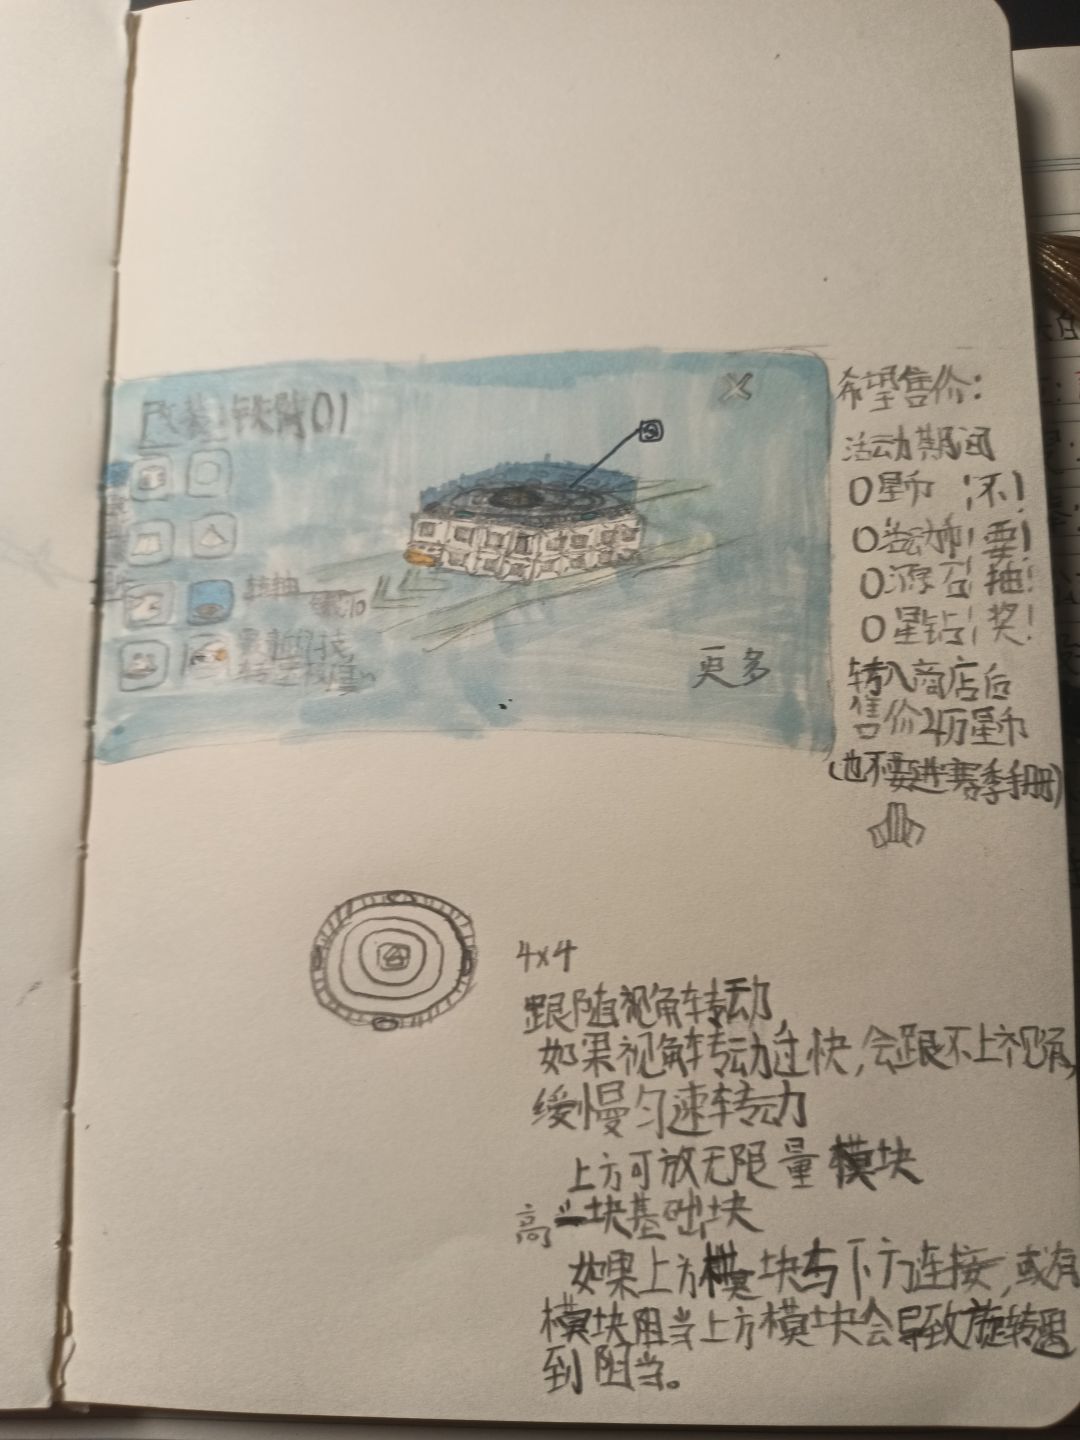 改装:铁臂01
转轴
更多
希望售价:
活动期间
0星币 不!
0活动币 要!
0源石 抽!
0星钻 奖!
转入商店后
售价4万星币
(也不要进赛季手册)
4×4
跟随视角转动,
如果视角转动过快,会跟不上视角,
缓慢匀速转动
上方可放无限量模块
高一块基础块
如果上方模块与下方连接,或有
模块阻当上方模块会导致旋转遇
到阻当。